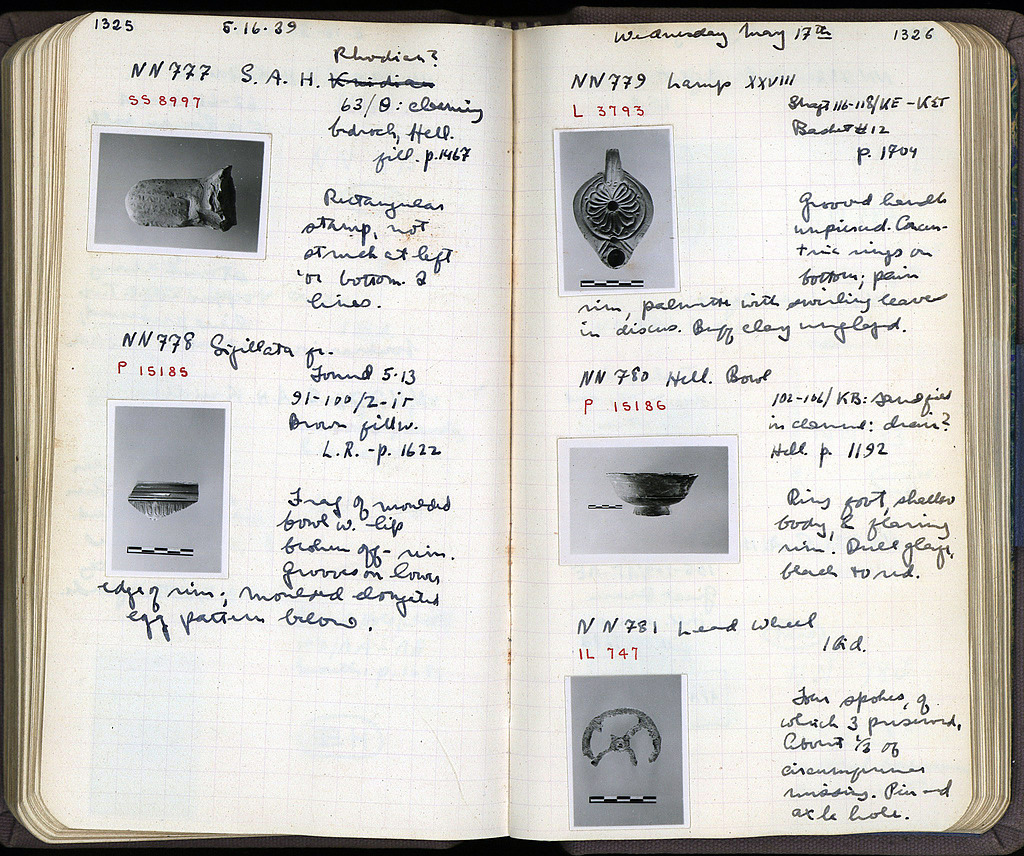 1325 5.16.39
Rhodian?
NN777 S. A. H. Knidian
SS 8997
63/Θ: cleaning
bedrock, Hell.
fill. p.1467
Rectangular
stamp, not
struck at left
or bottom. 2
lines.
NN778 Sigillata fr.
P 15185
Found 5.13
91-100/
Brown fill w.
L.R. - p. 1622
Frag of moulded
bowl w. lip
broken off - rim.
Grooves on lower
edge of rim; moulded elongated
egg pattern below.
Wednesday May 17th 1326
NN779 Lamp XXVIII
L 3793
Shaft 116-118/KE - KΣΤ
Basket #12
p. 1704
Grooved handle
unpierced. Concen-
tric rings on
bottom; plain
rim, palmette with swirling leaves
in discus. Buff clay unglazed.
NN 780 Hell. Bowl
P 15186
102-106/KB: sandfill
in channel: drain?
Hell. p. 1192
Ring foot, shallow
body, & flaring
rim. Dull glaze,
black to red.
NN781 Lead Wheel
IL 747
Ibid.
Four spokes, of
which 3 preserved.
About 1/3 of
circumference
missing. Pierced
axle hole.